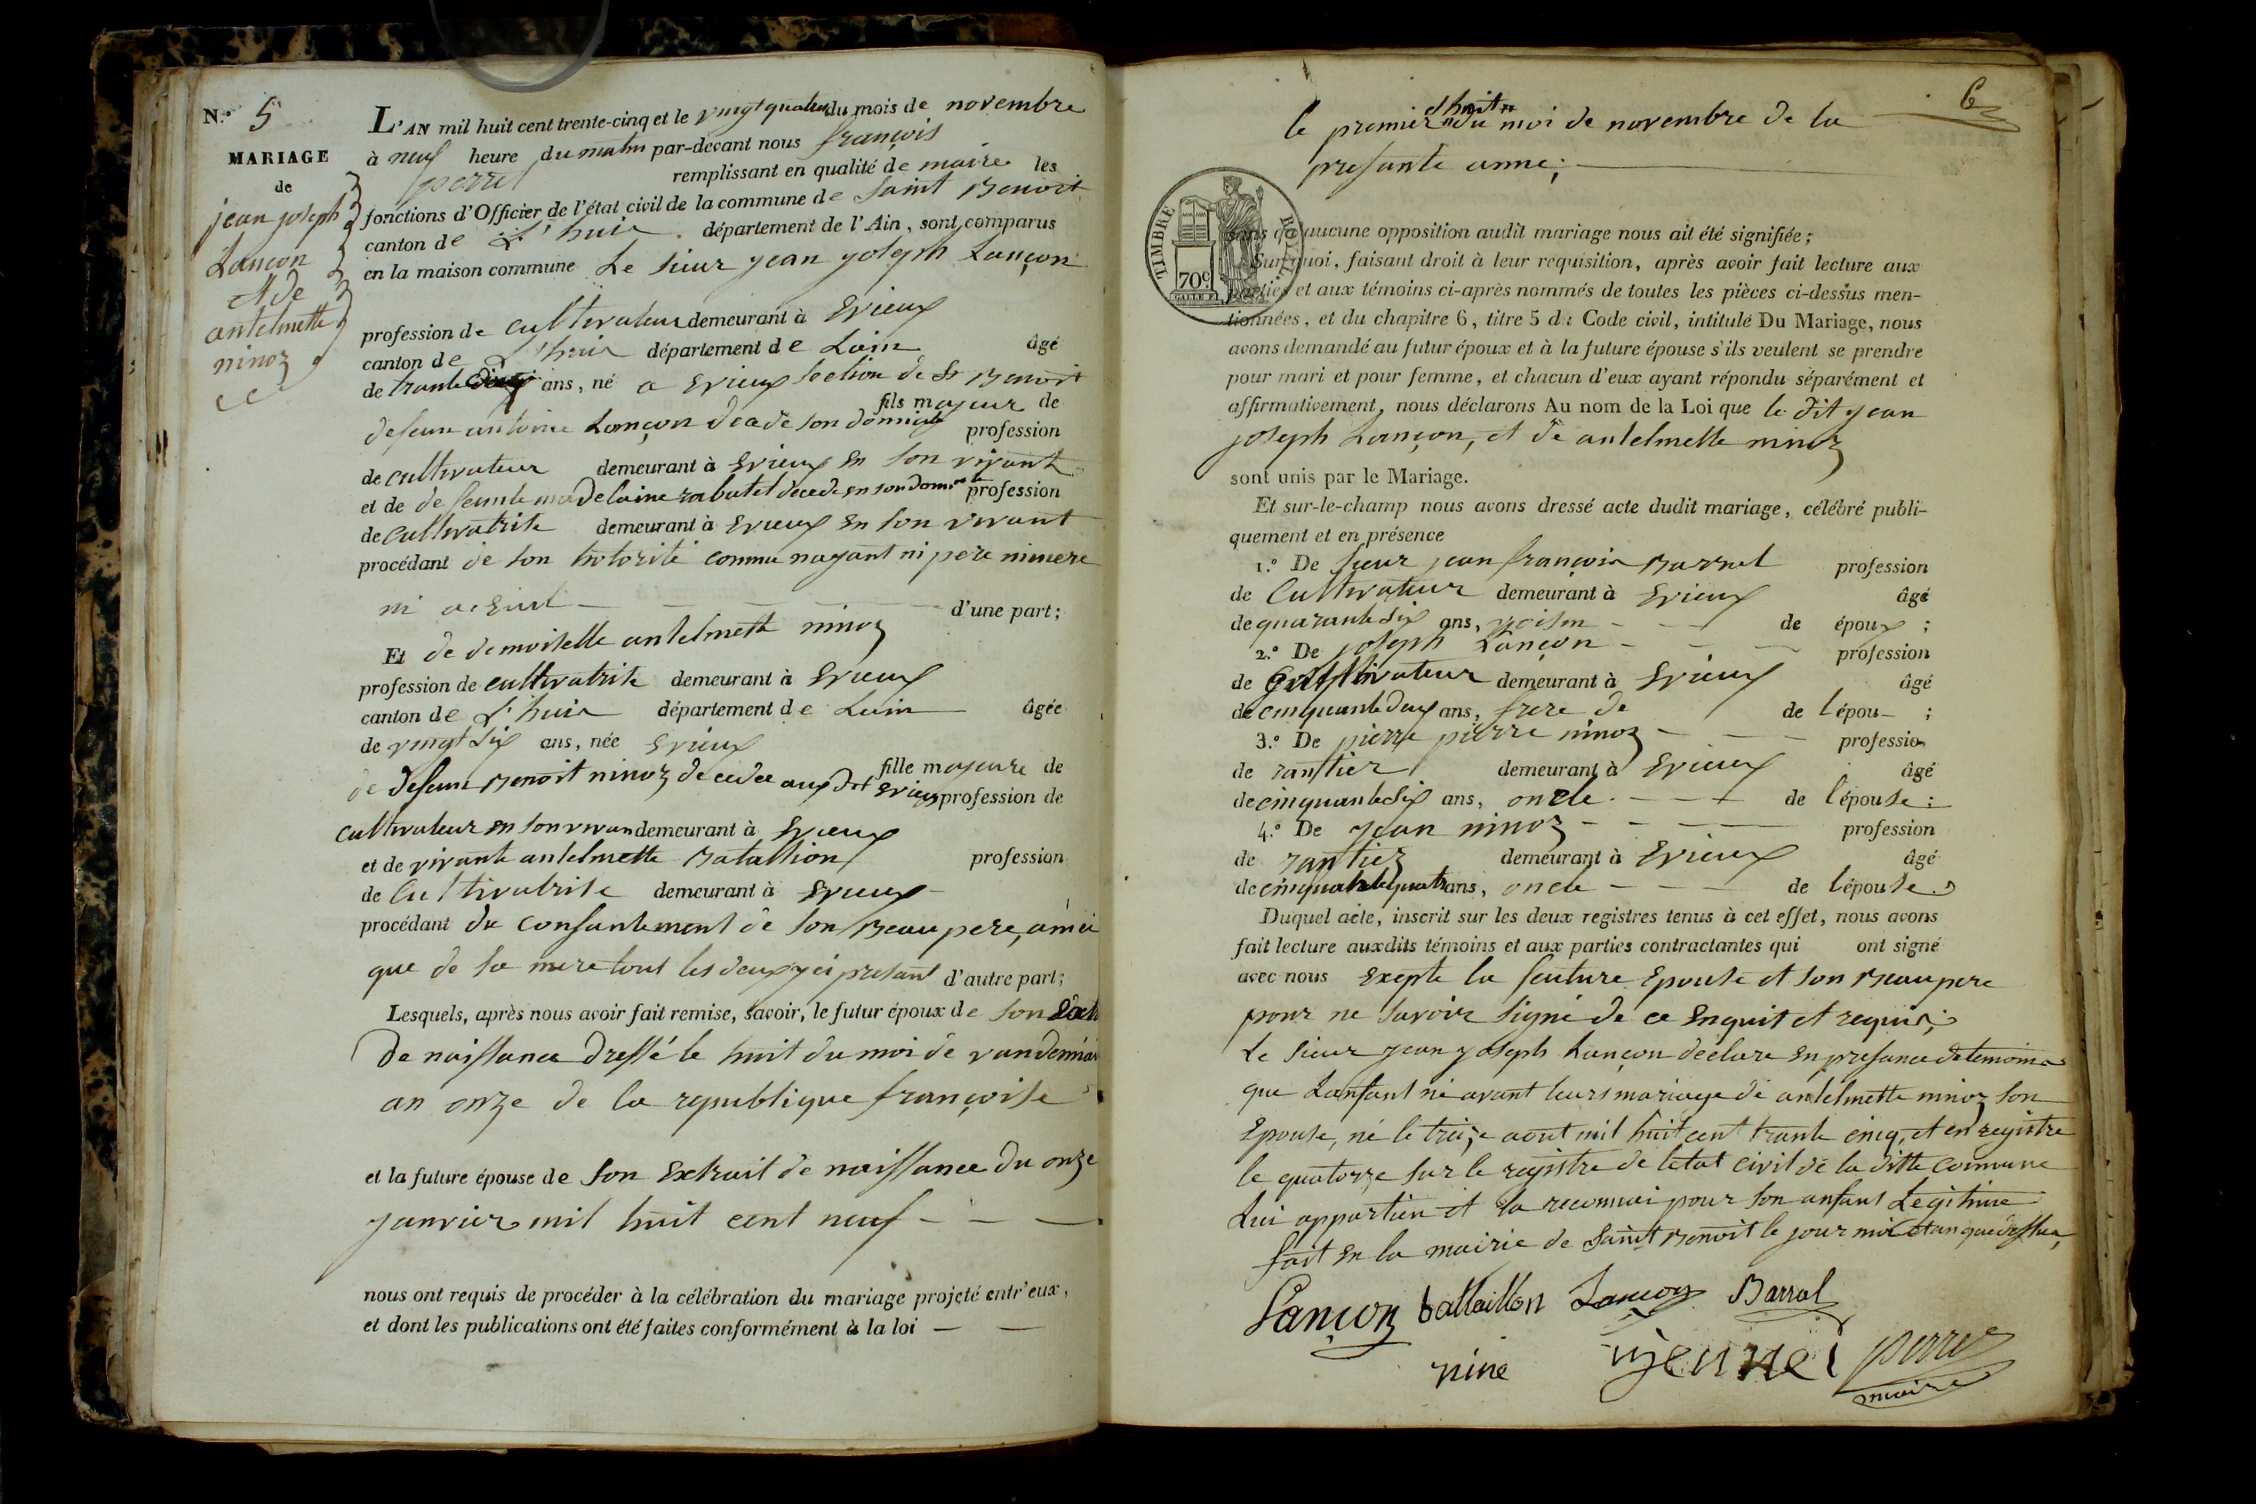 N.º 5
MARIAGE
de
jean joseph
Lançon
et de
antelmette
ninoz
L'AN mil huit cent trente-cinq et le vingt quatre du mois de novembre
à neuf heure du matin par-devant nous françois
perret remplissant en qualité de maire les
fonctions d'Officier de l'état civil de la commune de saint Benoit
canton de L'huis département de l'Ain, sont comparus
en la maison commune Le sieur jean joseph Lançon
profession de cultivateur demeurant à Evieux
canton de L'huis département de Lain âgé
de trante ans, né a Evieux section de St Benoit
fils majeur de
defeun antoine Lançon décédé son domicile profession
de cultivateur demeurant à Evieux en son vivant
et de defeunte madelaine rabatel decede en son domicile profession
de cultivatrise demeurant à Evieux en son vivant
procédant de son hotorité comme nayant ni pere ni mere
ni aieul d'une part;
Et de demoiselle antelmette ninoz
profession de cultivatrise demeurant à Evieux
canton de L'huis département de Lain âgée
de vingt six ans, née Evieux
fille majeure de
de defeun Benoit ninoz decedee aux dit Evieux profession de
cultivateur en son vivan demeurant à Evieux
et de vivante antelmette Batallion profession
de Cultivatrise demeurant à Evieux
procédant du consantement de son Beau pere, ainsi
que de sa mere tout les deux yci presant d'autre part;
Lesquels, après nous avoir fait remise, savoir, le futur époux de son
De naissance dressé le huit du moi de vandemiai
an onze de la republique françoise
et la future épouse de son Extrait de naissance du onze
janvier mil huit cent neuf
nous ont requis de procéder à la célébration du mariage projeté entr'eux,
et dont les publications ont été faites conformément à la loi
6
le premier et huit du moi de novembre de la
presante anne;
TIMBRE ROYAL
70 c.
sans qu'aucune opposition audit mariage nous ait été signifiée;
Sur quoi, faisant droit à leur requisition, après avoir fait lecture aux
parties et aux témoins ci-après nommés de toutes les pièces ci-dessus men-
tionnées, et du chapitre 6, titre 5 du Code civil, intitulé Du Mariage, nous
avons demandé au futur époux et à la future épouse s'ils veulent se prendre
pour mari et pour femme, et chacun d'eux ayant répondu séparément et
affirmativement, nous déclarons Au nom de la Loi que le dit jean
joseph Lançon, et de antelmette ninoz
sont unis par le Mariage.
Et sur-le-champ nous avons dressé acte dudit mariage, célébré publi-
quement et en présence
1.º De sieur jean françois Barral profession
de Cultivateur demeurant à Evieux âgé
de quarante six ans, voisin de époux ;
2.º De joseph Lançon profession
de Cultivateur demeurant à Evieux âgé
de cinquante deux ans, frere de de l'épou ;
3.º De pierre pierre ninoz profession
de rantier demeurant à Evieux âgé
de cinquante six ans, oncle de l'épouse ;
4.º De jean ninoz profession
de rantier demeurant à Evieux âgé
de cinquante quatre ans, oncle de l'épouse.
Duquel acte, inscrit sur les deux registres tenus à cet effet, nous avons
fait lecture auxdits témoins et aux parties contractantes qui ont signé
avec nous Exepte la feuture Epouse et son Beau pere
pour ne savoir signé de ce Enquit et requis;
Le sieur jean joseph Lançon declare en presance de temoins
que Lanfant né avant leurs mariage de antelmette ninoz son
Epouse, né le treize aout mil huit cent trante cinq, et enregistre
le quatorze sur le registre de letat civil de la ditte commune
Lui appartien et la reconnai pour son anfant Legitime
fait en la mairie de saint Benoit le jour moi et an que dessus,
Lançon battaillon Lançon Barral
nine perret
maire